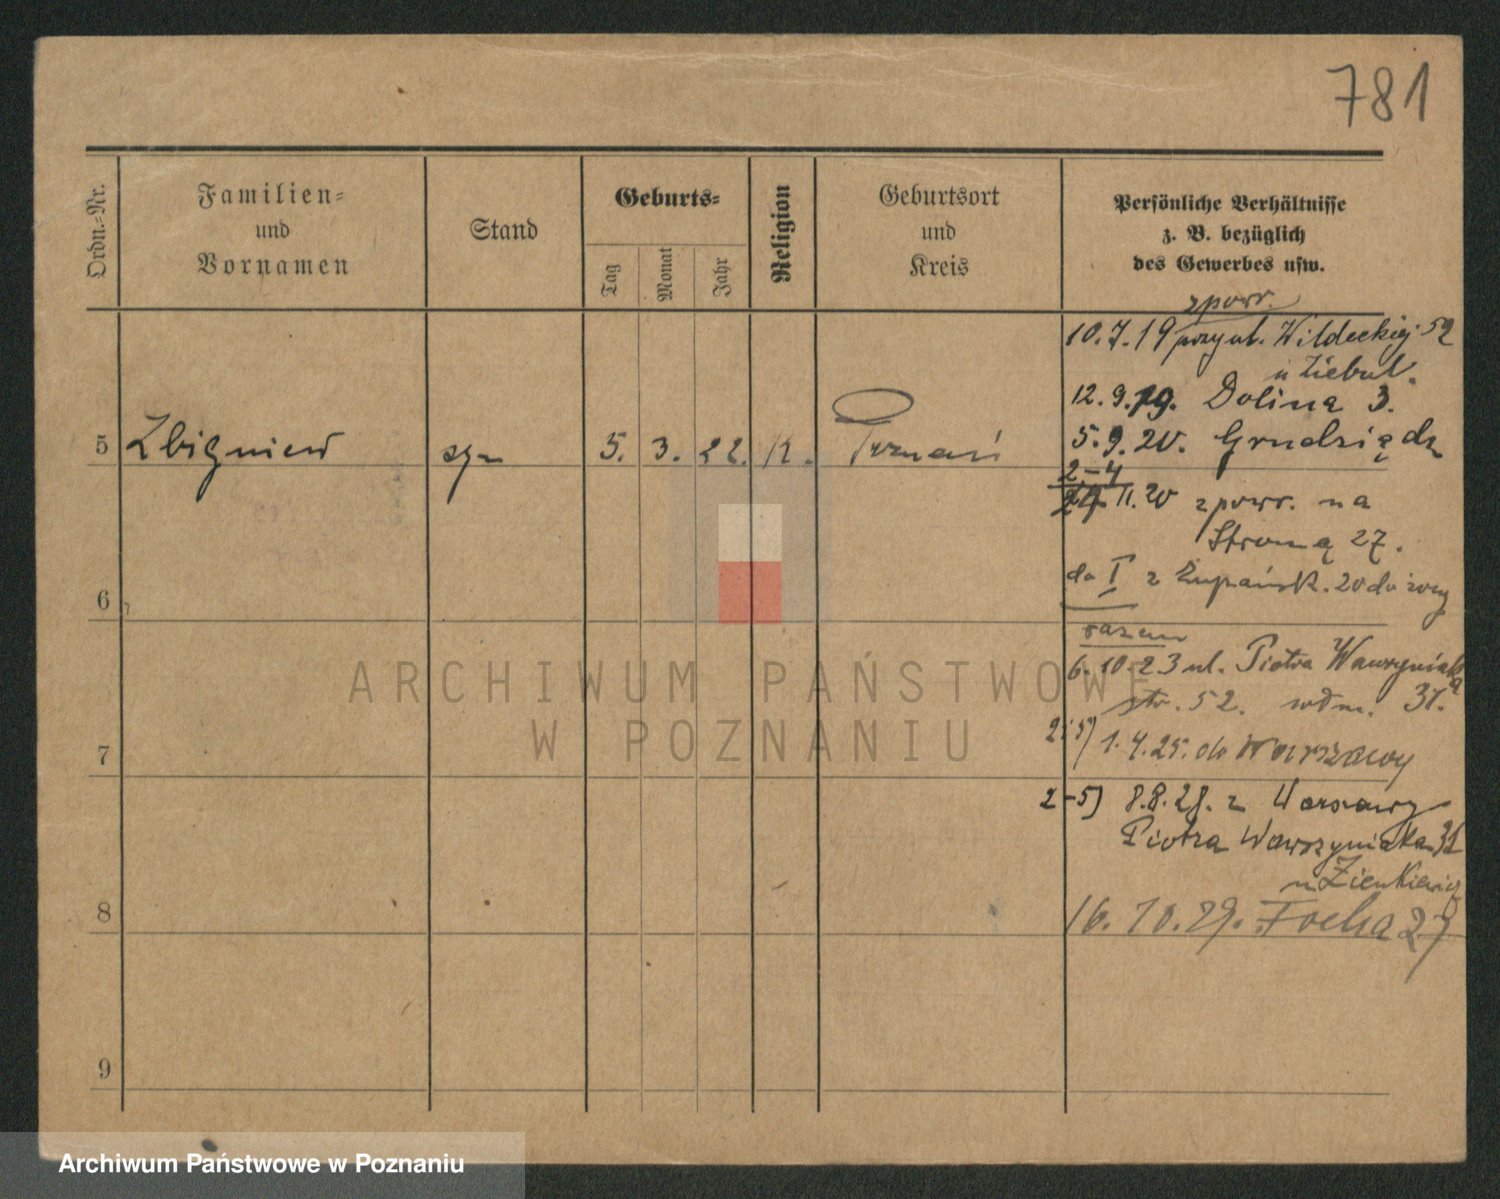 781
Ordn.-Nr.
Familien-
und
Vornamen
Stand
Geburts-
Tag
Monat
Jahr
Religion
Geburtsort
und
Kreis
Persönliche Verhältnisse
z. B. bezüglich
des Gewerbes usw.
zpowr.
10.7.19 przy ul. Wildeckiej 52
u Ziebul.
12.9.19. Dolina 3.
5 Zbigniew syn 5. 3. 22. K. Poznań
5.9.20. Grudziądz
2-4
11.20 zpowr. na
Stromą 27.
do I z Żupańsk. 20 do żony
6
razem
6.10.23 ul. Piotra Wawrzyniaka
str. 52. wdm. 31.
2i5) 1.4.25. do Warszawy
7
2-5) 8.8.28. z Warszawy
Piotra Wawrzyniaka 31
u Zienkiewicz
8
16.10.29. Focha 27
9
ARCHIWUM PAŃSTWOWE
W POZNANIU
Archiwum Państwowe w Poznaniu